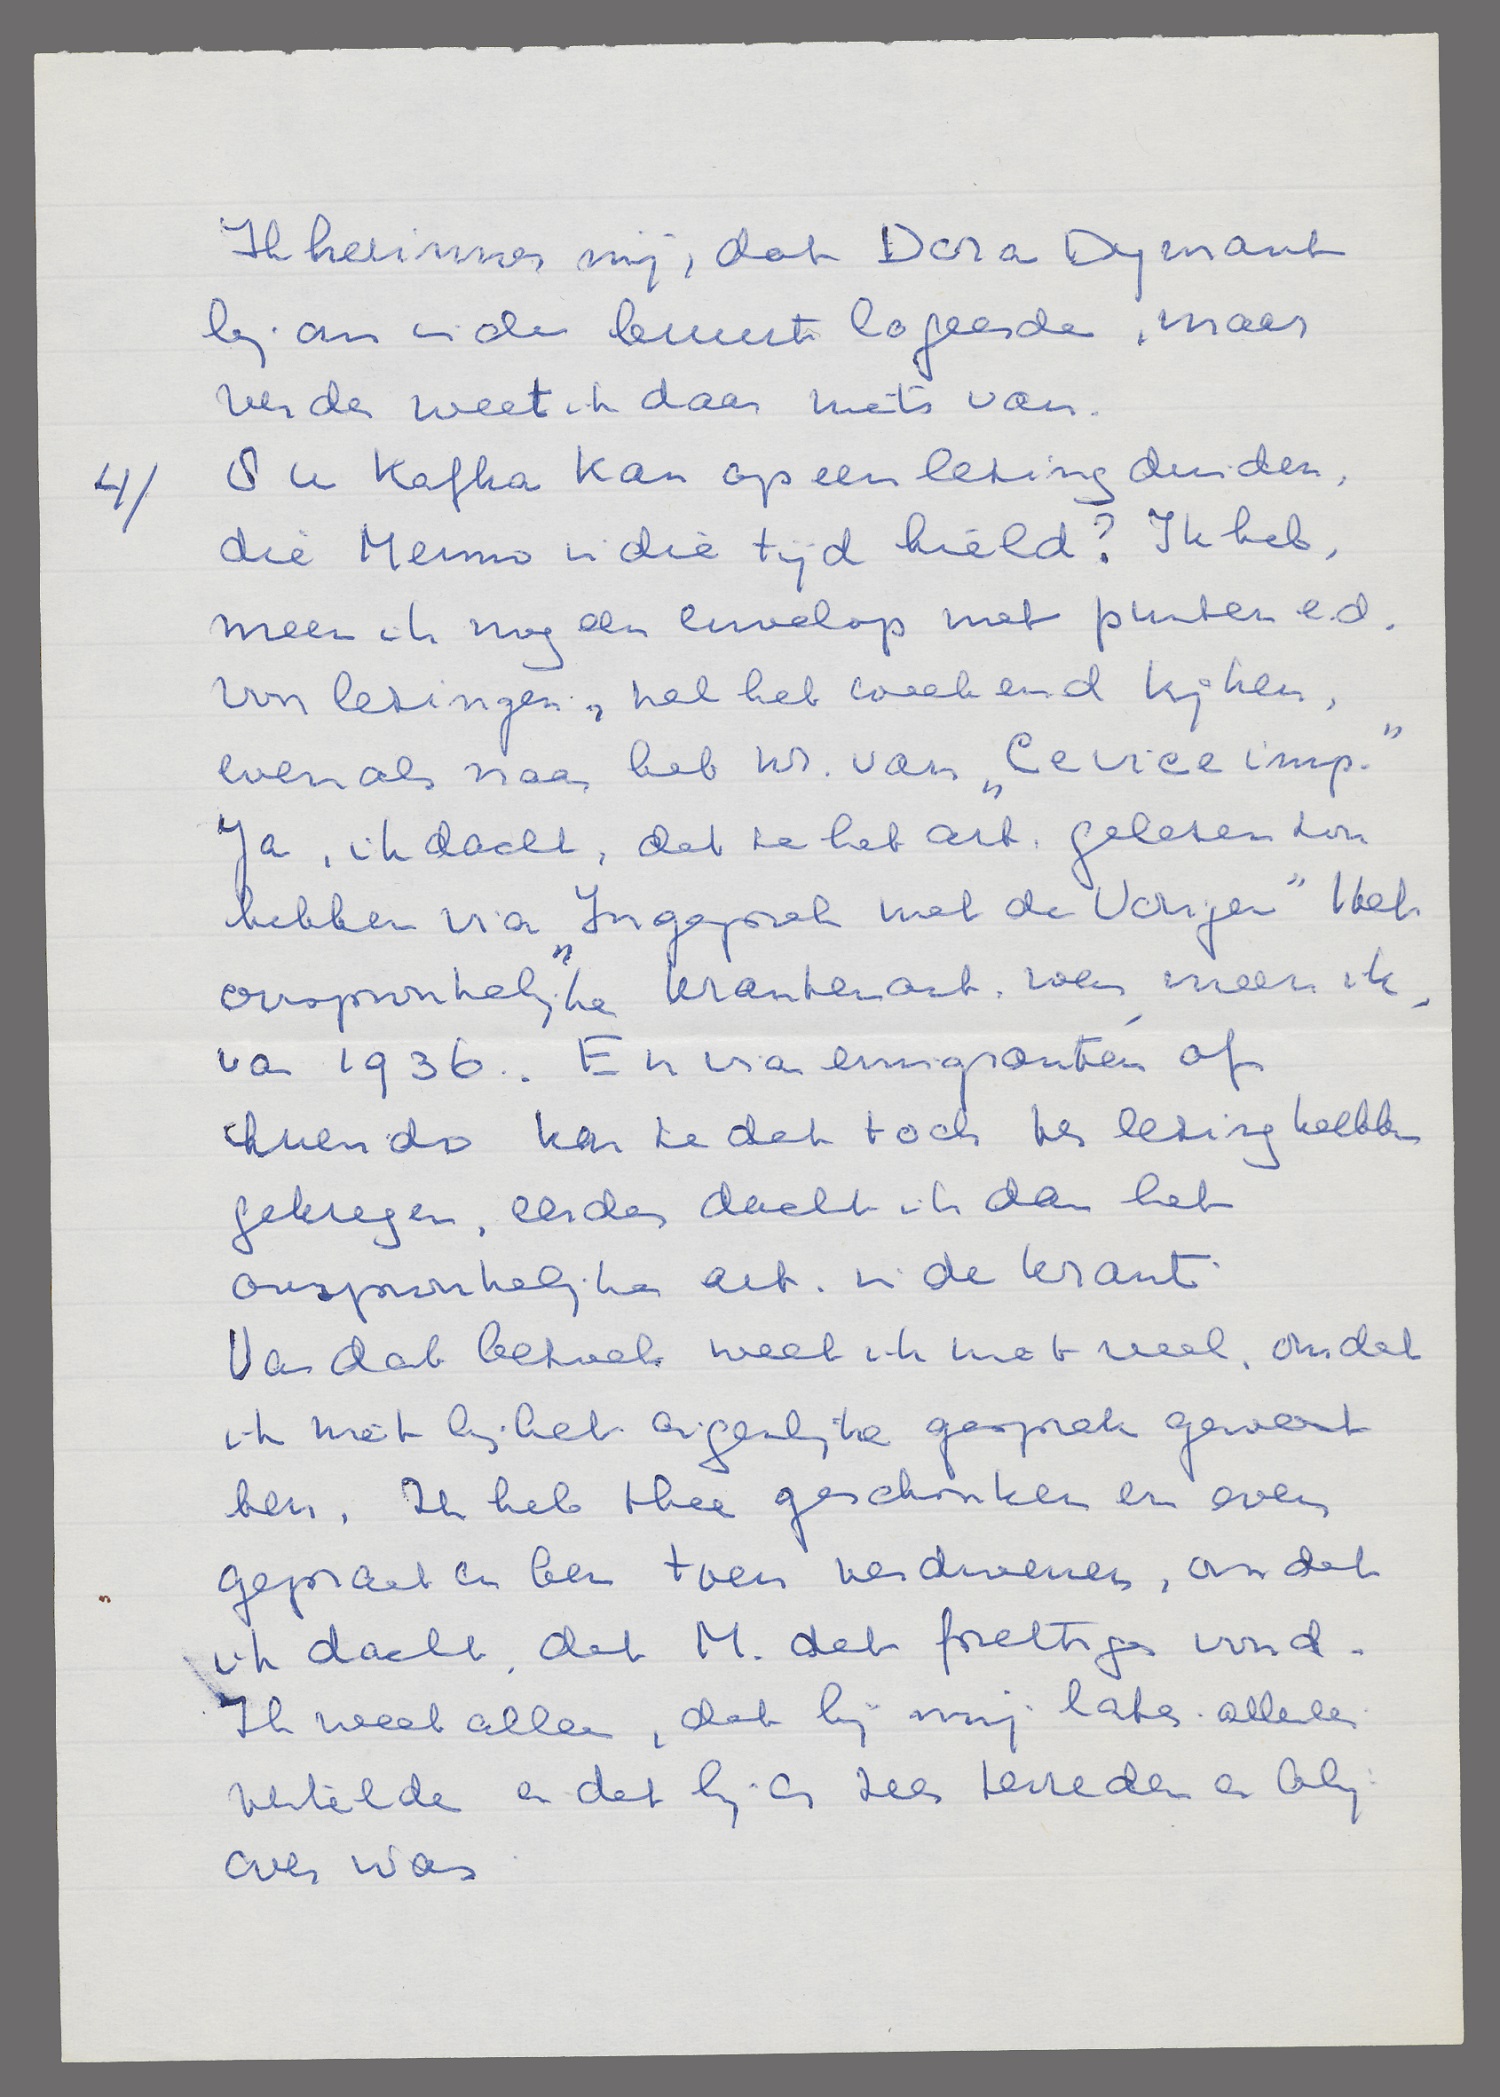 Ik herinner mij, dat Dora Dymant
bij ons in de buurt logeerde, maar
verder weet ik daar niets van.
4/ S u Kafka kan op een lezing duiden,
die Menno in die tijd hield? Ik heb,
meen ik nog een envelop met punten e.d.
von lezingen, zal het weekend kijken,
evenals naar het nr. van „Ce vice imp."
Ja, ik dacht, dat ze het art. gelezen zou
hebben via „In gesprek met de Vorigen" Het
oorspronkelijke krantenart. was, meen ik,
van 1936.. En via emigranten of
kan ze dat toch ter lezing hebben
gekregen, eerder dacht ik dan het
oorspronkelijke art. in de krant.
Van dat bezoek weet ik niet veel, omdat
ik niet bij het eigenlijke gesprek geweest
ben. Ik heb thee geschonken en even
gepraat en ben toen verdwenen, omdat
ik dacht, dat M. dat prettiger vond.
Ik weet alleen, dat hij mij later allerlei
vertelde en dat hij er zeer tevreden en blij
over was